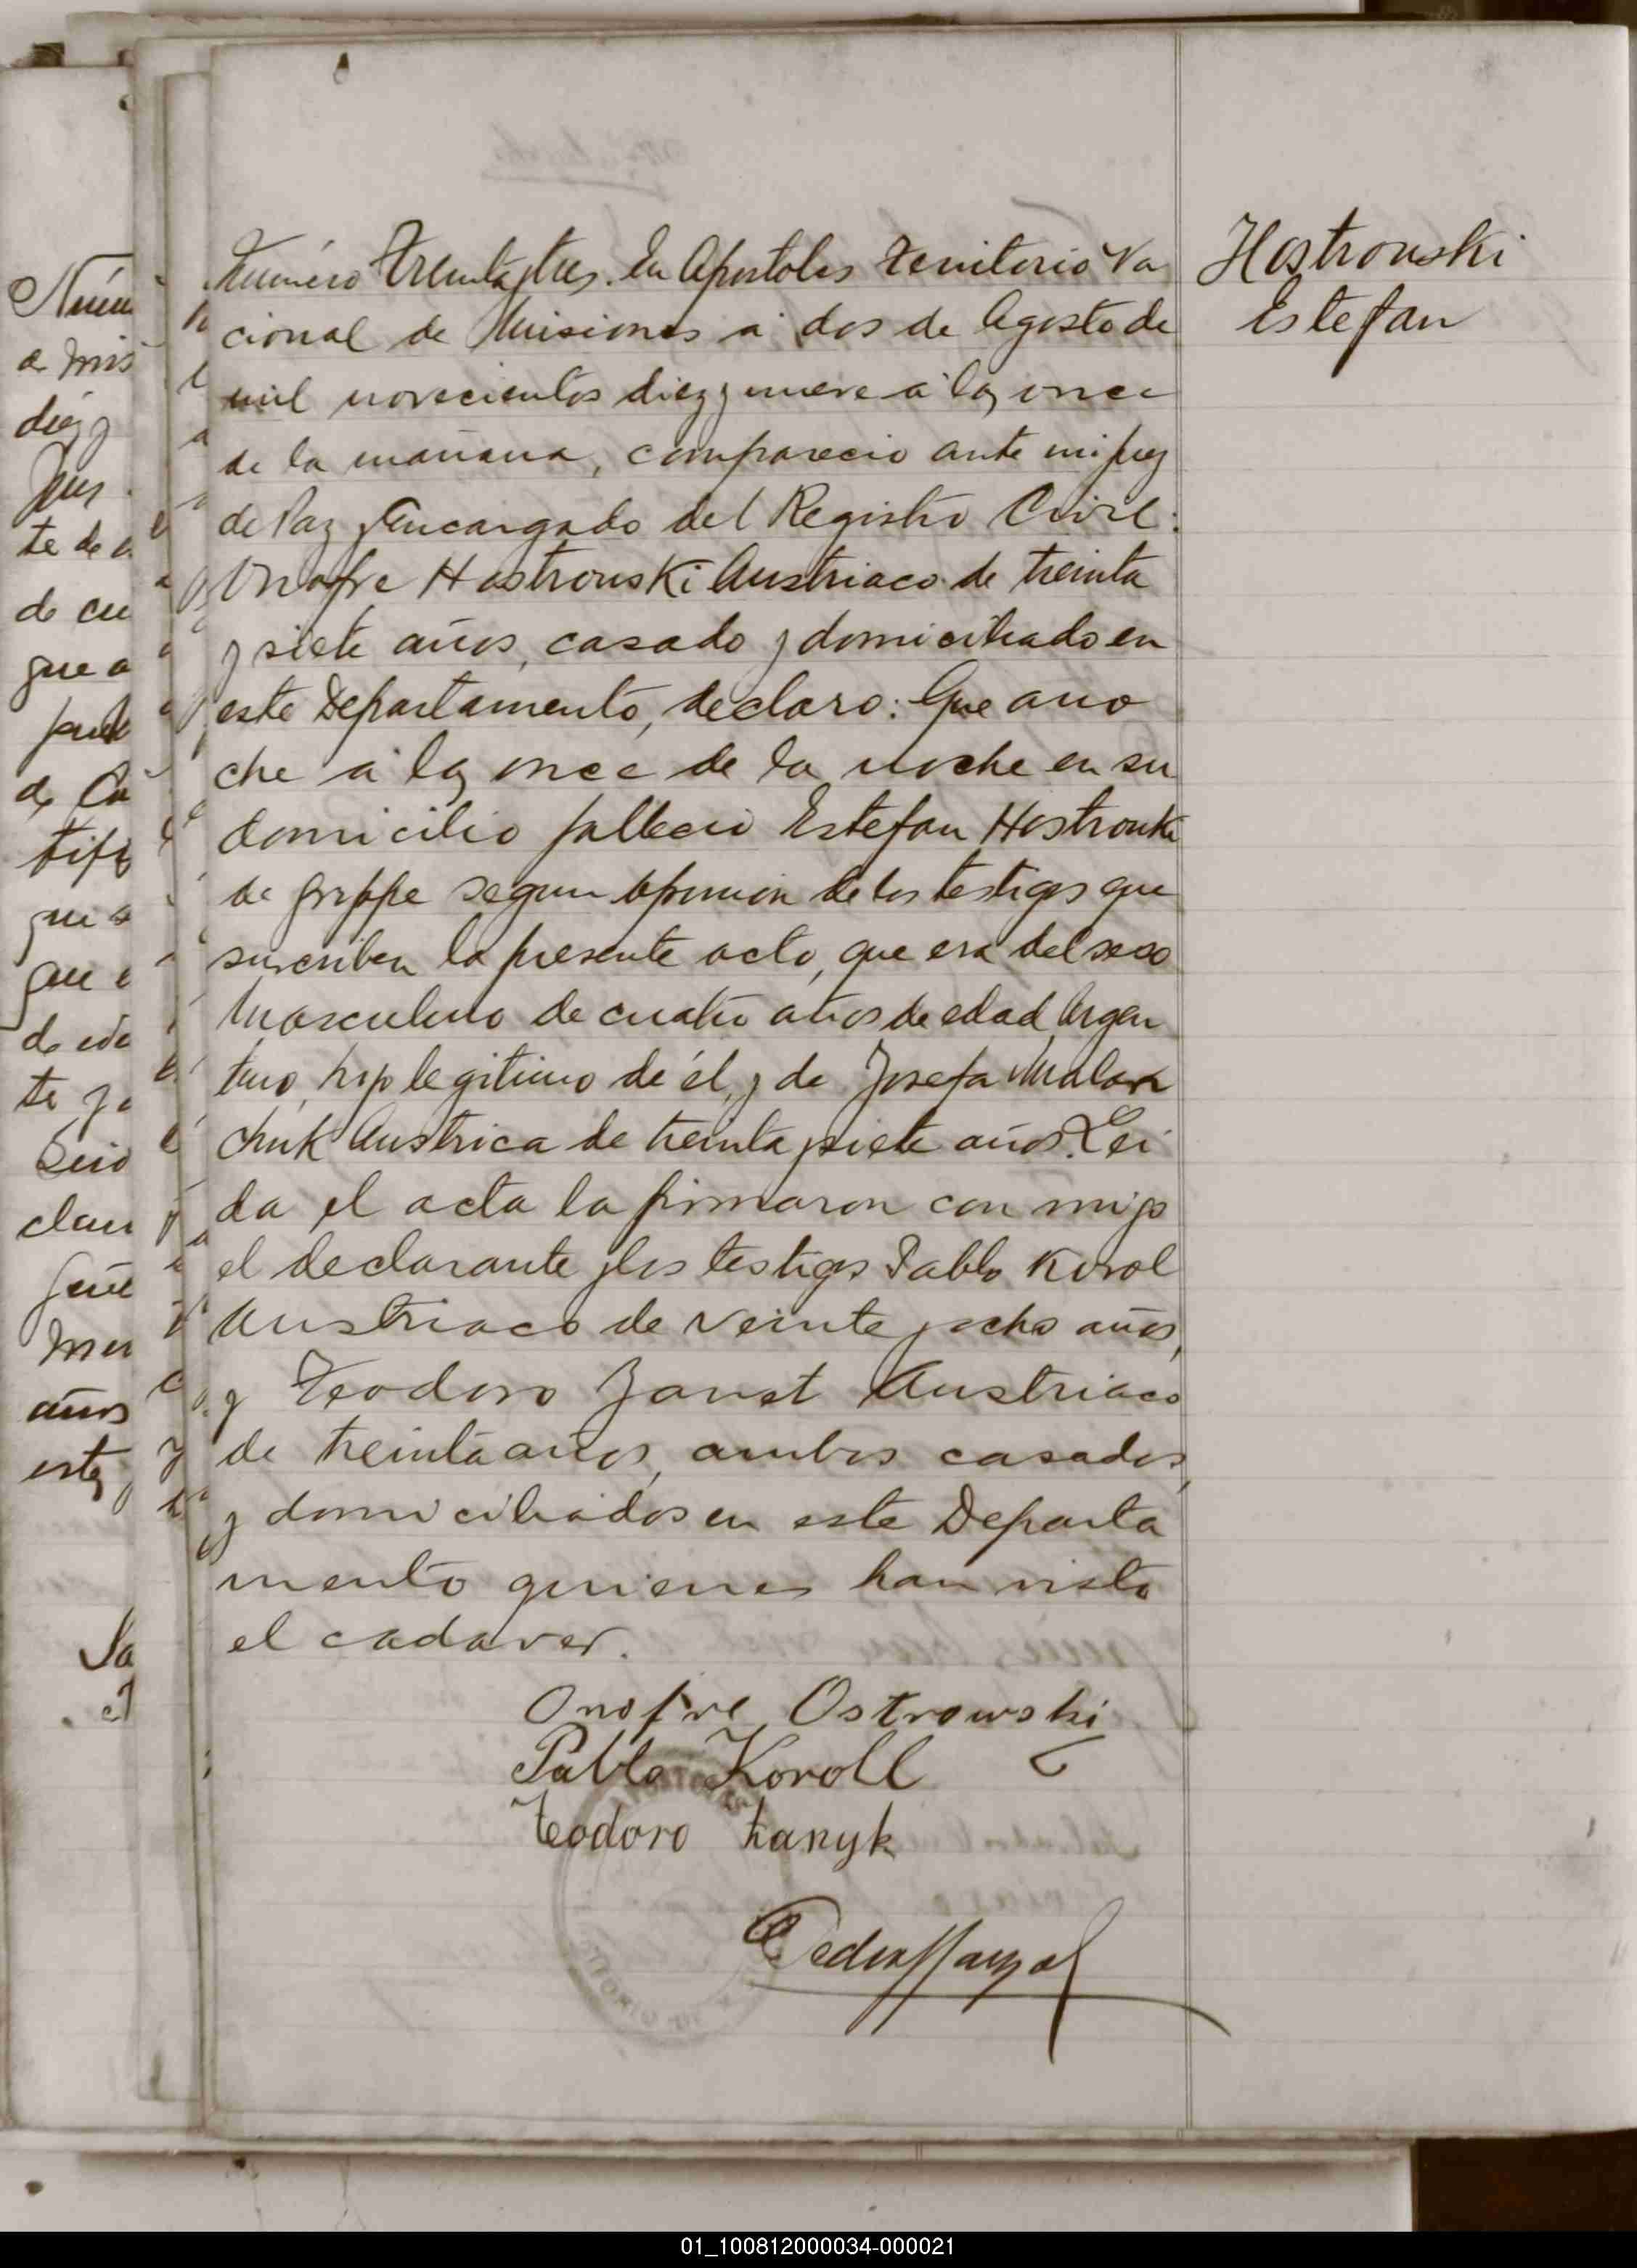 Hostrouski
Estefan
Número treinta y tres. En Apostoles Territorio Na
cional de Misiones á dos de Agosto de
mil novecientos diez y nueve á las once
de la mañana, comparecio ante mi Juez
de Paz y Encargado del Registro Civil:
Onofre Hostrouski Austriaco de treinta
y siete años, casado y domiciliado en
este Departamento, declaro: Que ano
che á las once de la noche en su
domicilio fallecio Estefan Hostrouki
de grippe segun opinion de los testigos que
suscriben la presente acta, que era del sexo
masculino de cuatro años de edad Argen
tino, hijo legitimo de él, y de Josefa Malan
chuk Austrica de treinta y siete años. Lei
da el acta la firmaron con migo
el declarante y los testigos Pablo Korol
Austriaco de veinte y ocho años,
y Teodoro Zanet Austriaco
de treinta años, ambos casados,
y domiciliados en este Departa
mento quienes han visto
el cadaver.
Onofre Ostrowski
Pablo Koroll
Teodoro
Pedro
01_100812000034-000021